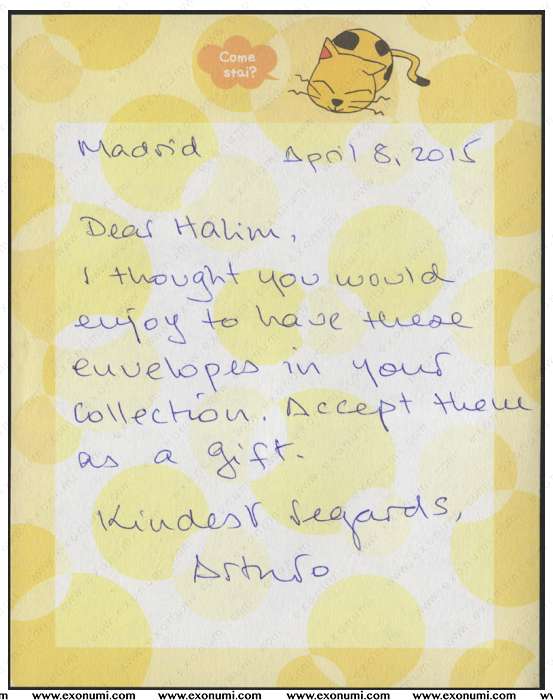 Come
stai?
Madrid April 8, 2015
Dear Halim,
I thought you would
enjoy to have these
envelopes in your
collection. Accept them
as a gift.
Kindest regards,
Arturo
www.exonumi.com www.exonumi.com www.exonumi.com www.exonumi.com